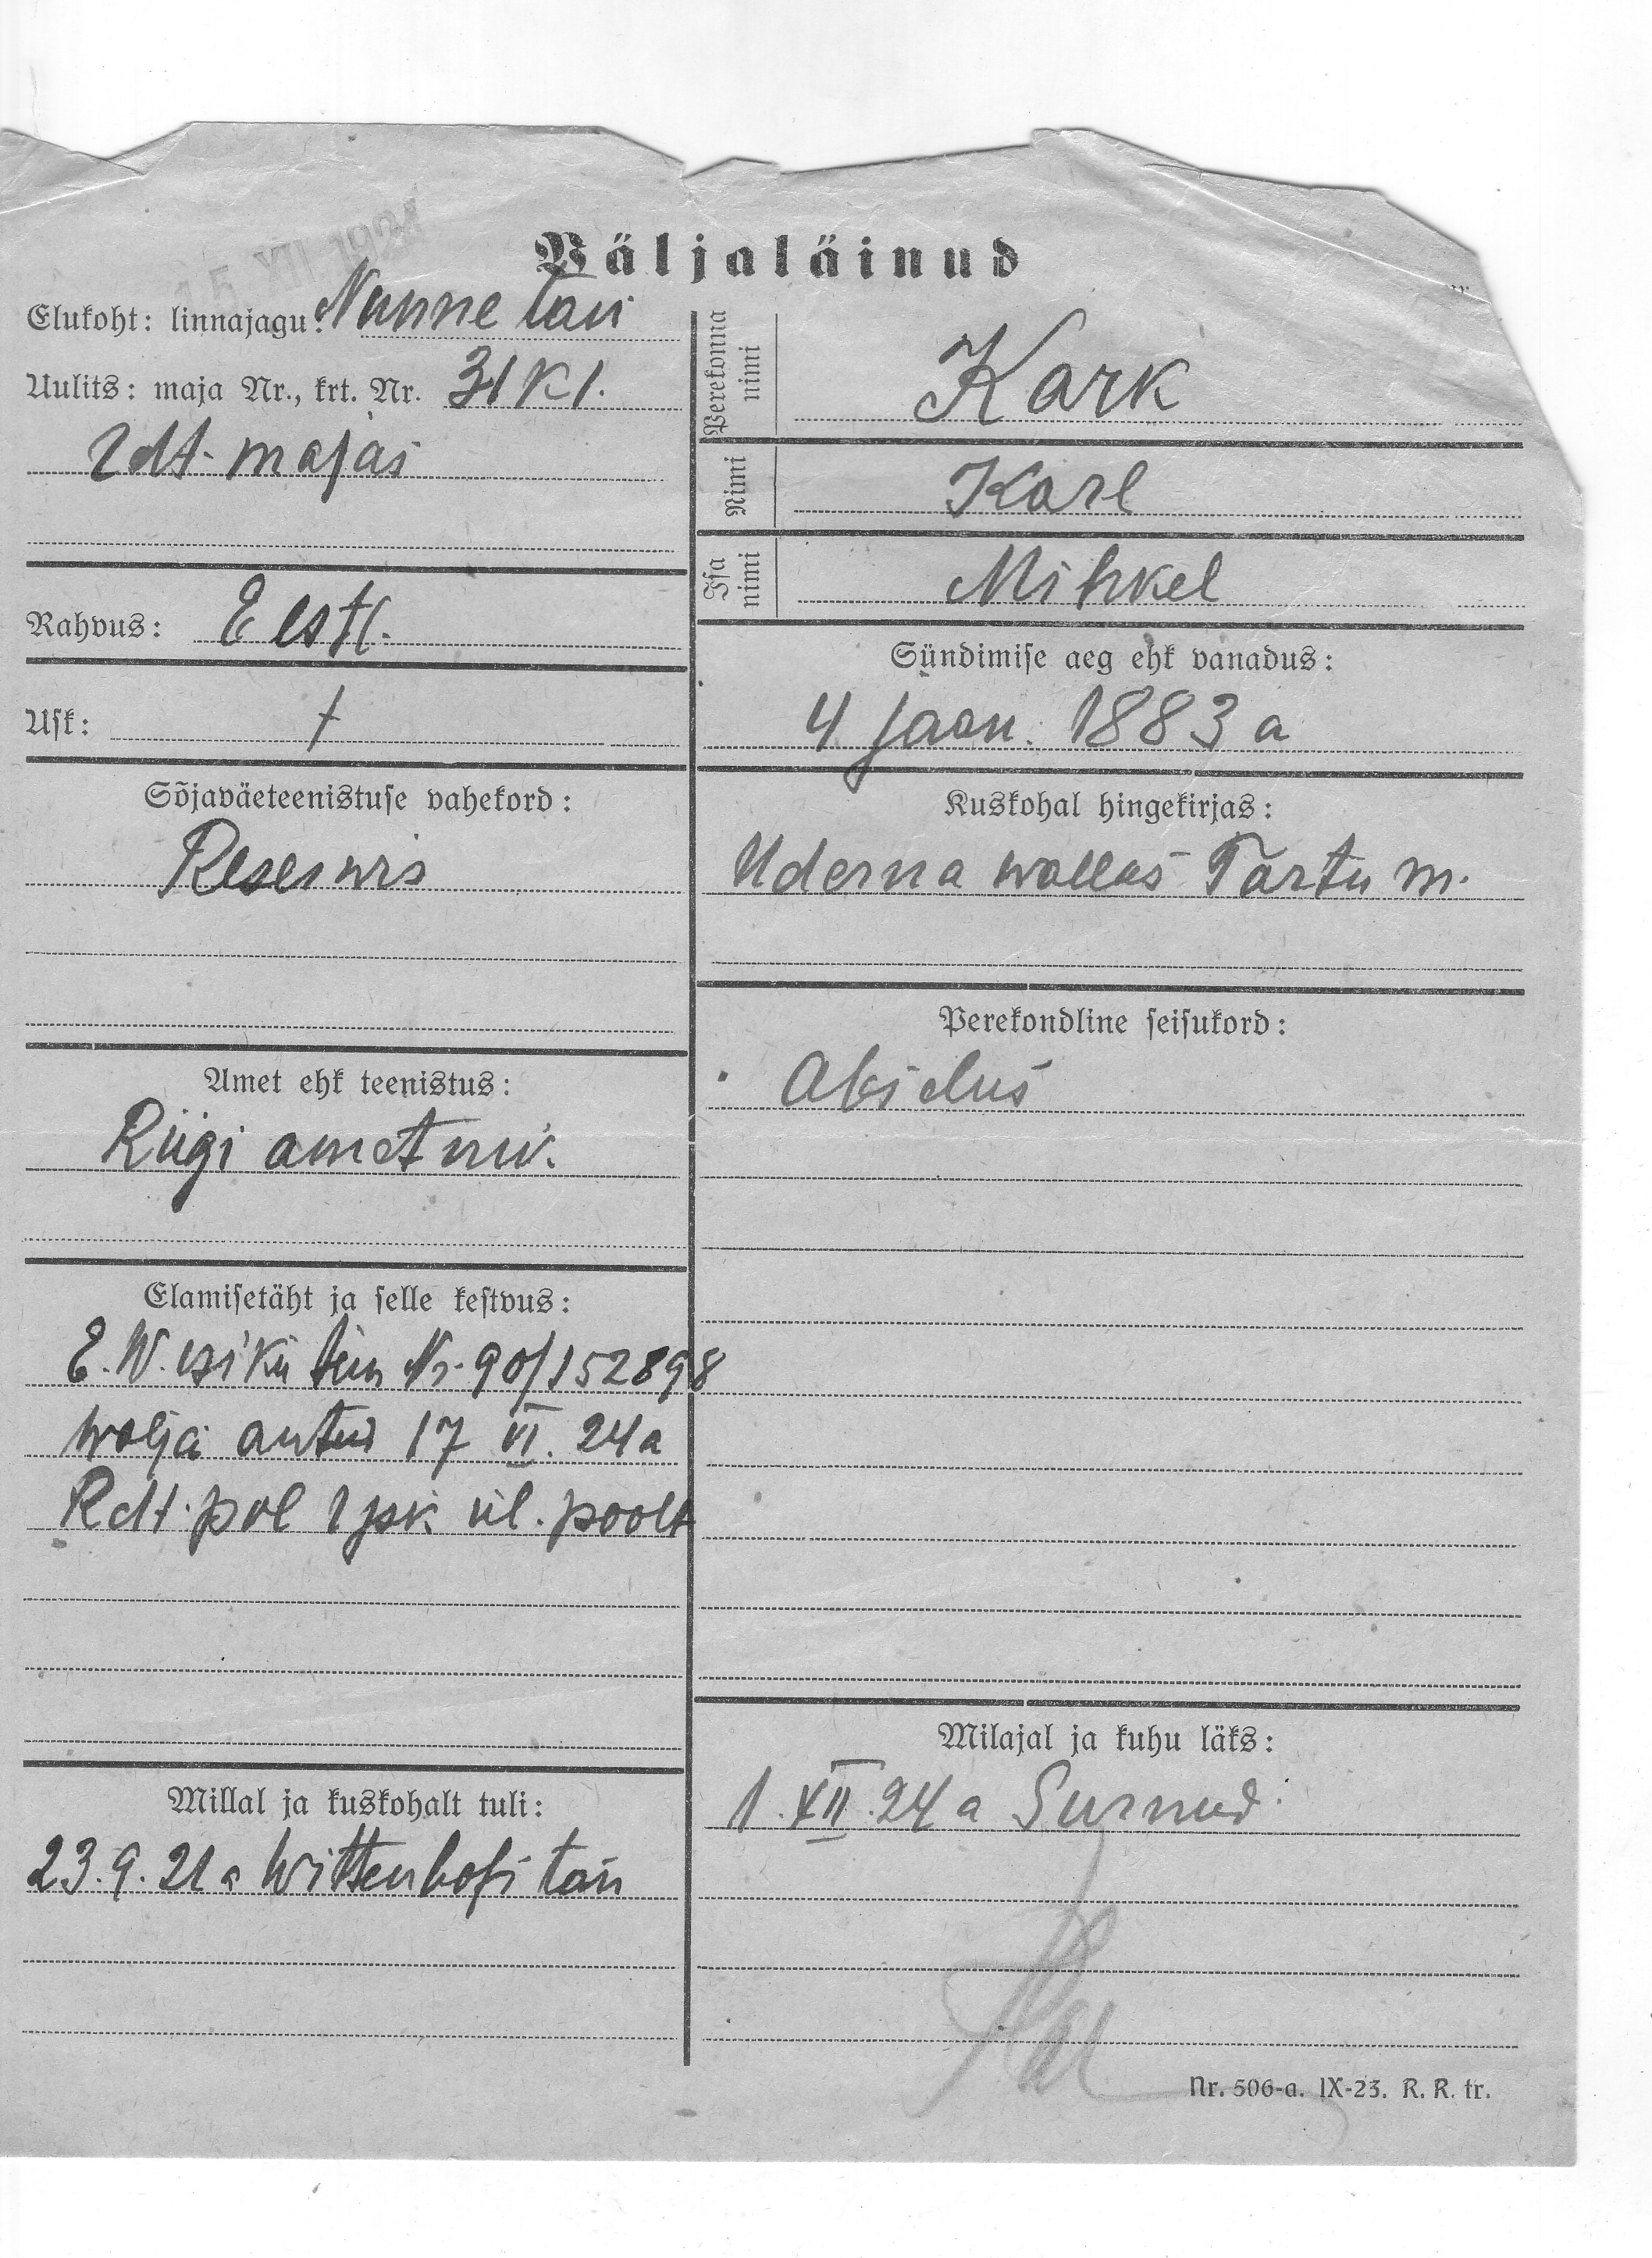 15. XII 1924
Väljaläinud
Elukoht: linnajagu: Nunne tän
Uulits: maja Nr., krt. Nr. 31 K 1.
Rdt. majas
Rahvus: Eestl.
Usk: †
Sõjaväeteenistuse vahekord:
Reserwis
Amet ehk teenistus:
Riigi ametnik.
Elamisetäht ja selle kestvus:
E. W. isiku tun Nr. 90/152898
wälja antud 17 VI. 24 a
Rdt. pol 1 jsk ül. poolt
Millal ja kuskohalt tuli:
23.9.21 a Wittenhofi tän
Perekonna nimi
Kark
Nimi
Karl
Isa nimi
Mihkel
Sündimise aeg ehk vanadus:
4 jaan. 1883 a
Kuskohal hingekirjas:
Uderna wallas Tartu m.
Perekondline seisukord:
Abielus
Milajal ja kuhu läks:
1. XII. 24 a Surnud.
Nr. 506-a. IX-23. R. R. tr.